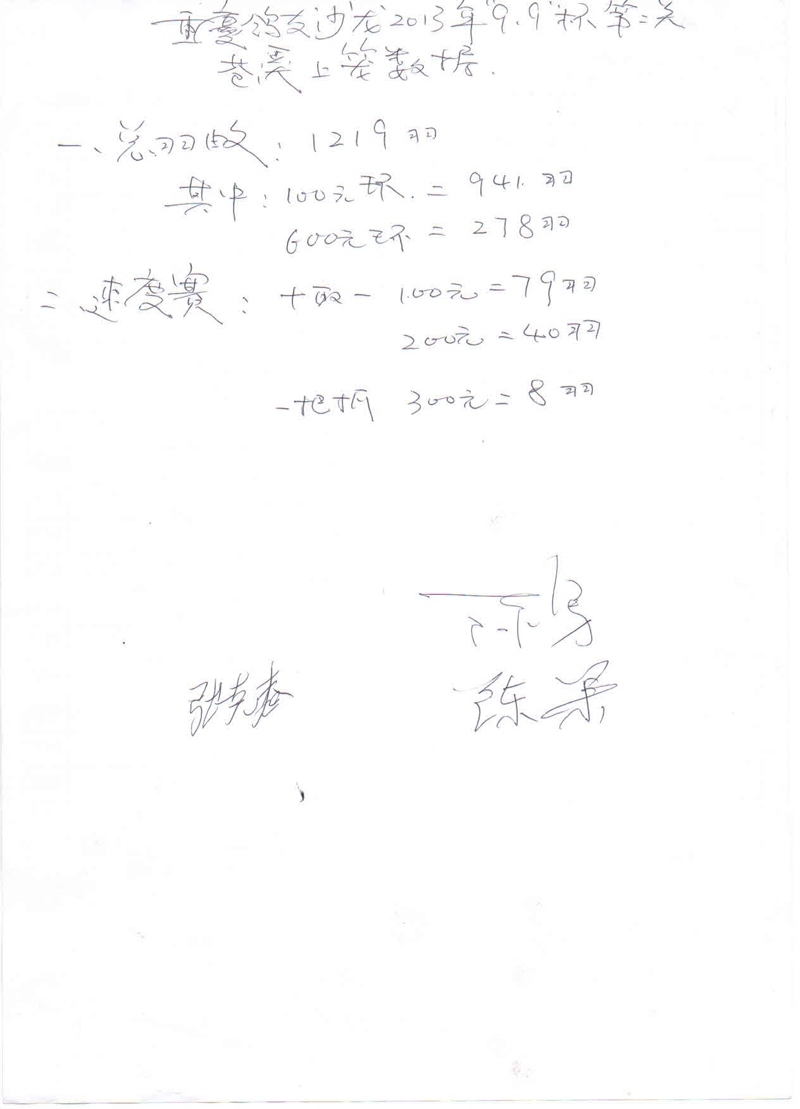 重庆鸽友沙龙2013年"9.9"杯第二关
苍溪上笼数据.
一、总羽数: 1219羽
其中: 100元环. = 941.羽
600元环 = 278羽
二 速度赛: 十取一 100元=79羽
200元=40羽
一把抓 300元=8羽
张
陈